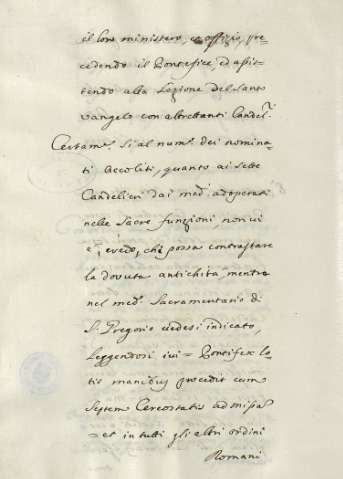 il loro ministero, ed offizio, pre-
cedendo il Pontefice, ed assis-
tendo alla Lezione del Santo
vangelo con altrettanti Candel.ri
Certam.e si al num.o dei nomina-
ti accoliti, quanto ai sette
Candelieri dai med.i adoperati
nelle Sacre funzioni, non vi
è, credo, chi possa contrastare
la dovuta antichità, mentre
nel med.o Sacramentario di
S. Gregorio vedesi indicato,
leggendosi ivi = Pontifex lo-
tis manibus procedit cum
septem Cereostatis ad missa
= et in tutti gli altri ordini
Romani